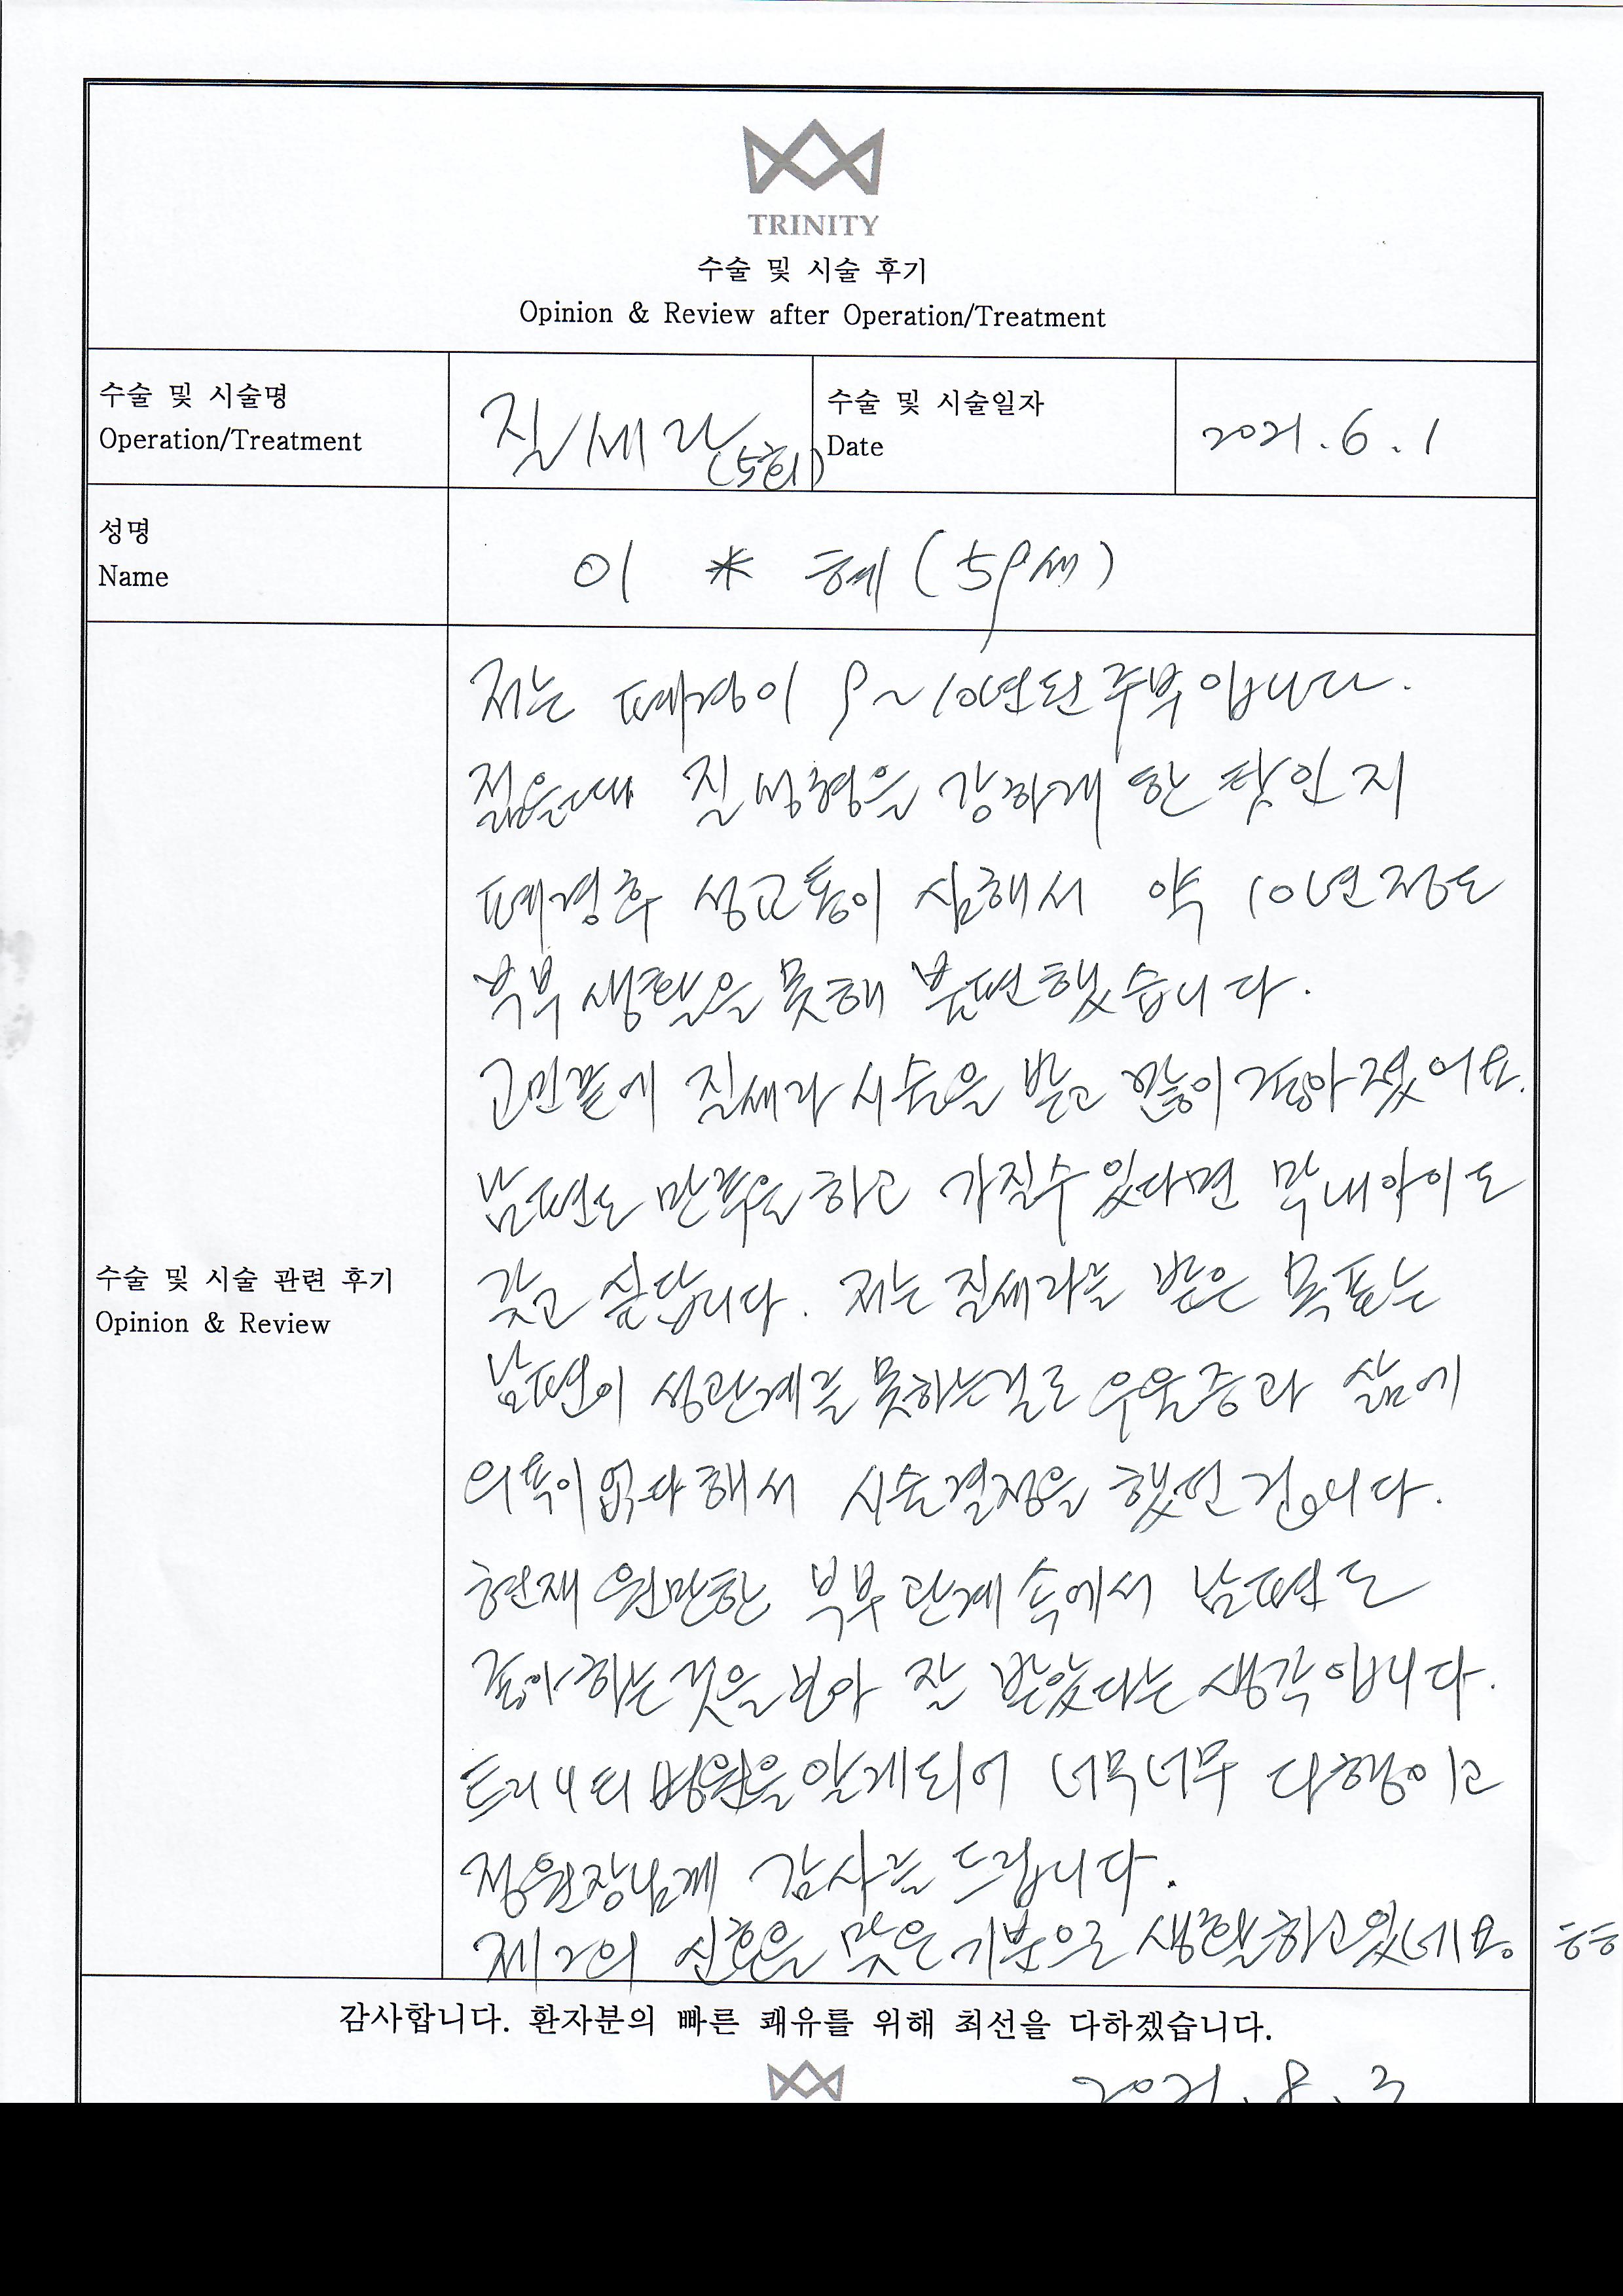 TRINITY
수술 및 시술 후기
Opinion & Review after Operation/Treatment
수술 및 시술명
Operation/Treatment
질세라
(5회)
수술 및 시술일자
Date
2021.6.1
성명
Name
이 * 혜 (59세)
수술 및 시술 관련 후기
Opinion & Review
저는 폐경이 9~10년된 주부입니다.
젊을때 질성형을 강하게 한 탓인지
폐경후 성교통이 심해서 약 10년정도
부부생활을 못해 불편했습니다.
고민끝에 질세라 시술을 받고 많이 좋아졌어요.
남편도 만족을 하고 가질수있다면 막내아이도
갖고 싶답니다. 저는 질세라를 받은 목표는
남편이 성관계를 못하는걸로 우울증과 삶에
의욕이 없다해서 시술결정을 했던 겁니다.
현재 원만한 부부관계속에서 남편도
좋아하는것을 보아 잘 받았다는 생각입니다.
트리니티 병원을 알게되어 너무너무 다행이고
정원장님께 감사를 드립니다.
제2의 신혼을 맞은 기분으로 생활하고있네요. ㅎㅎ
감사합니다. 환자분의 빠른 쾌유를 위해 최선을 다하겠습니다.
2021.8.3